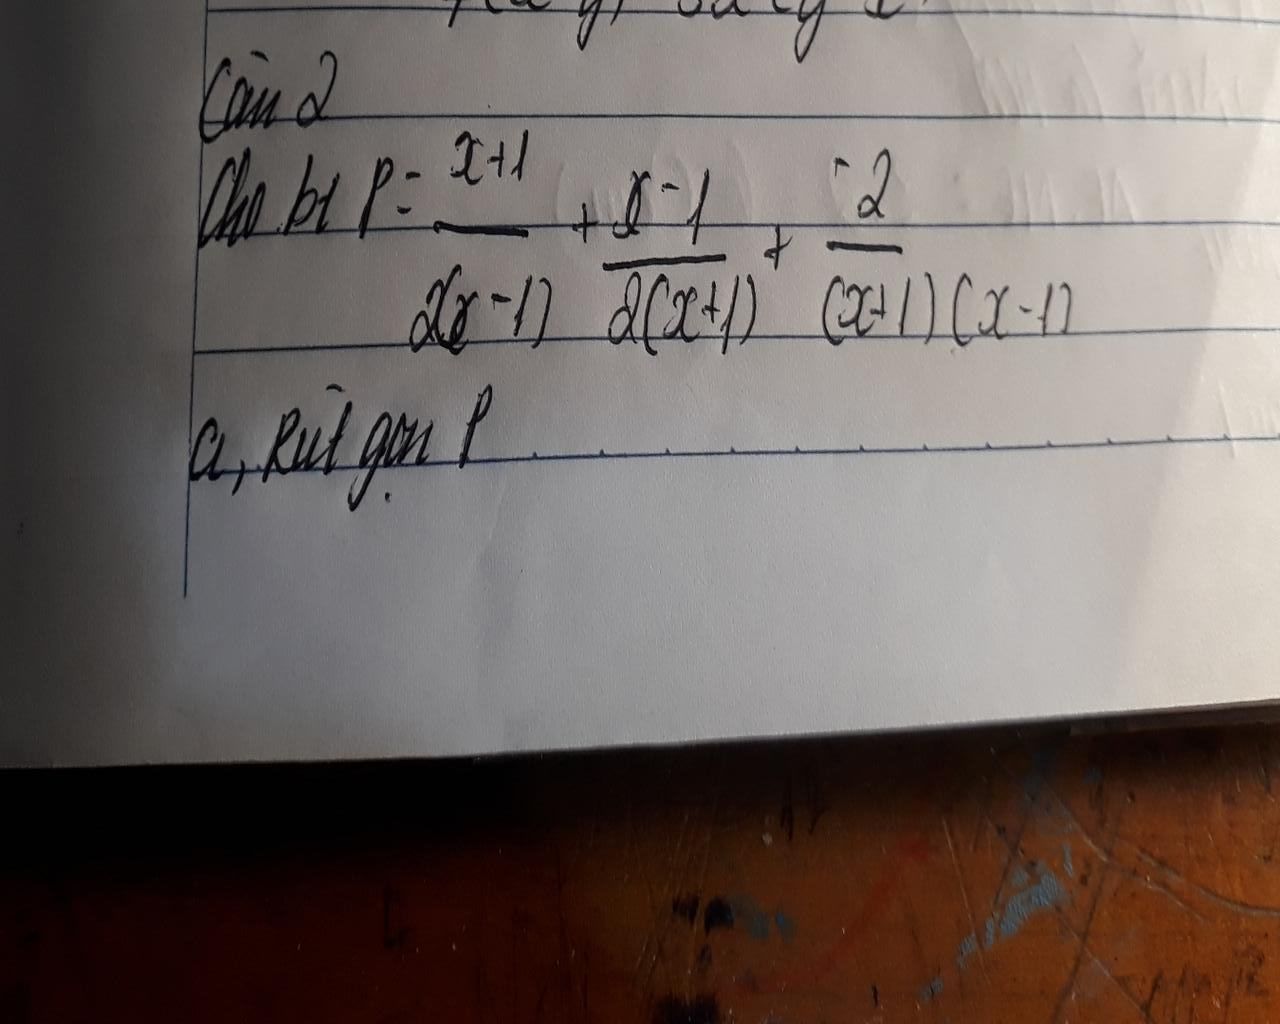 Câu 2
Cho bt P = x+1 / 2(x-1) + x-1 / 2(x+1) + -2 / (x+1)(x-1)
a, Rút gọn P